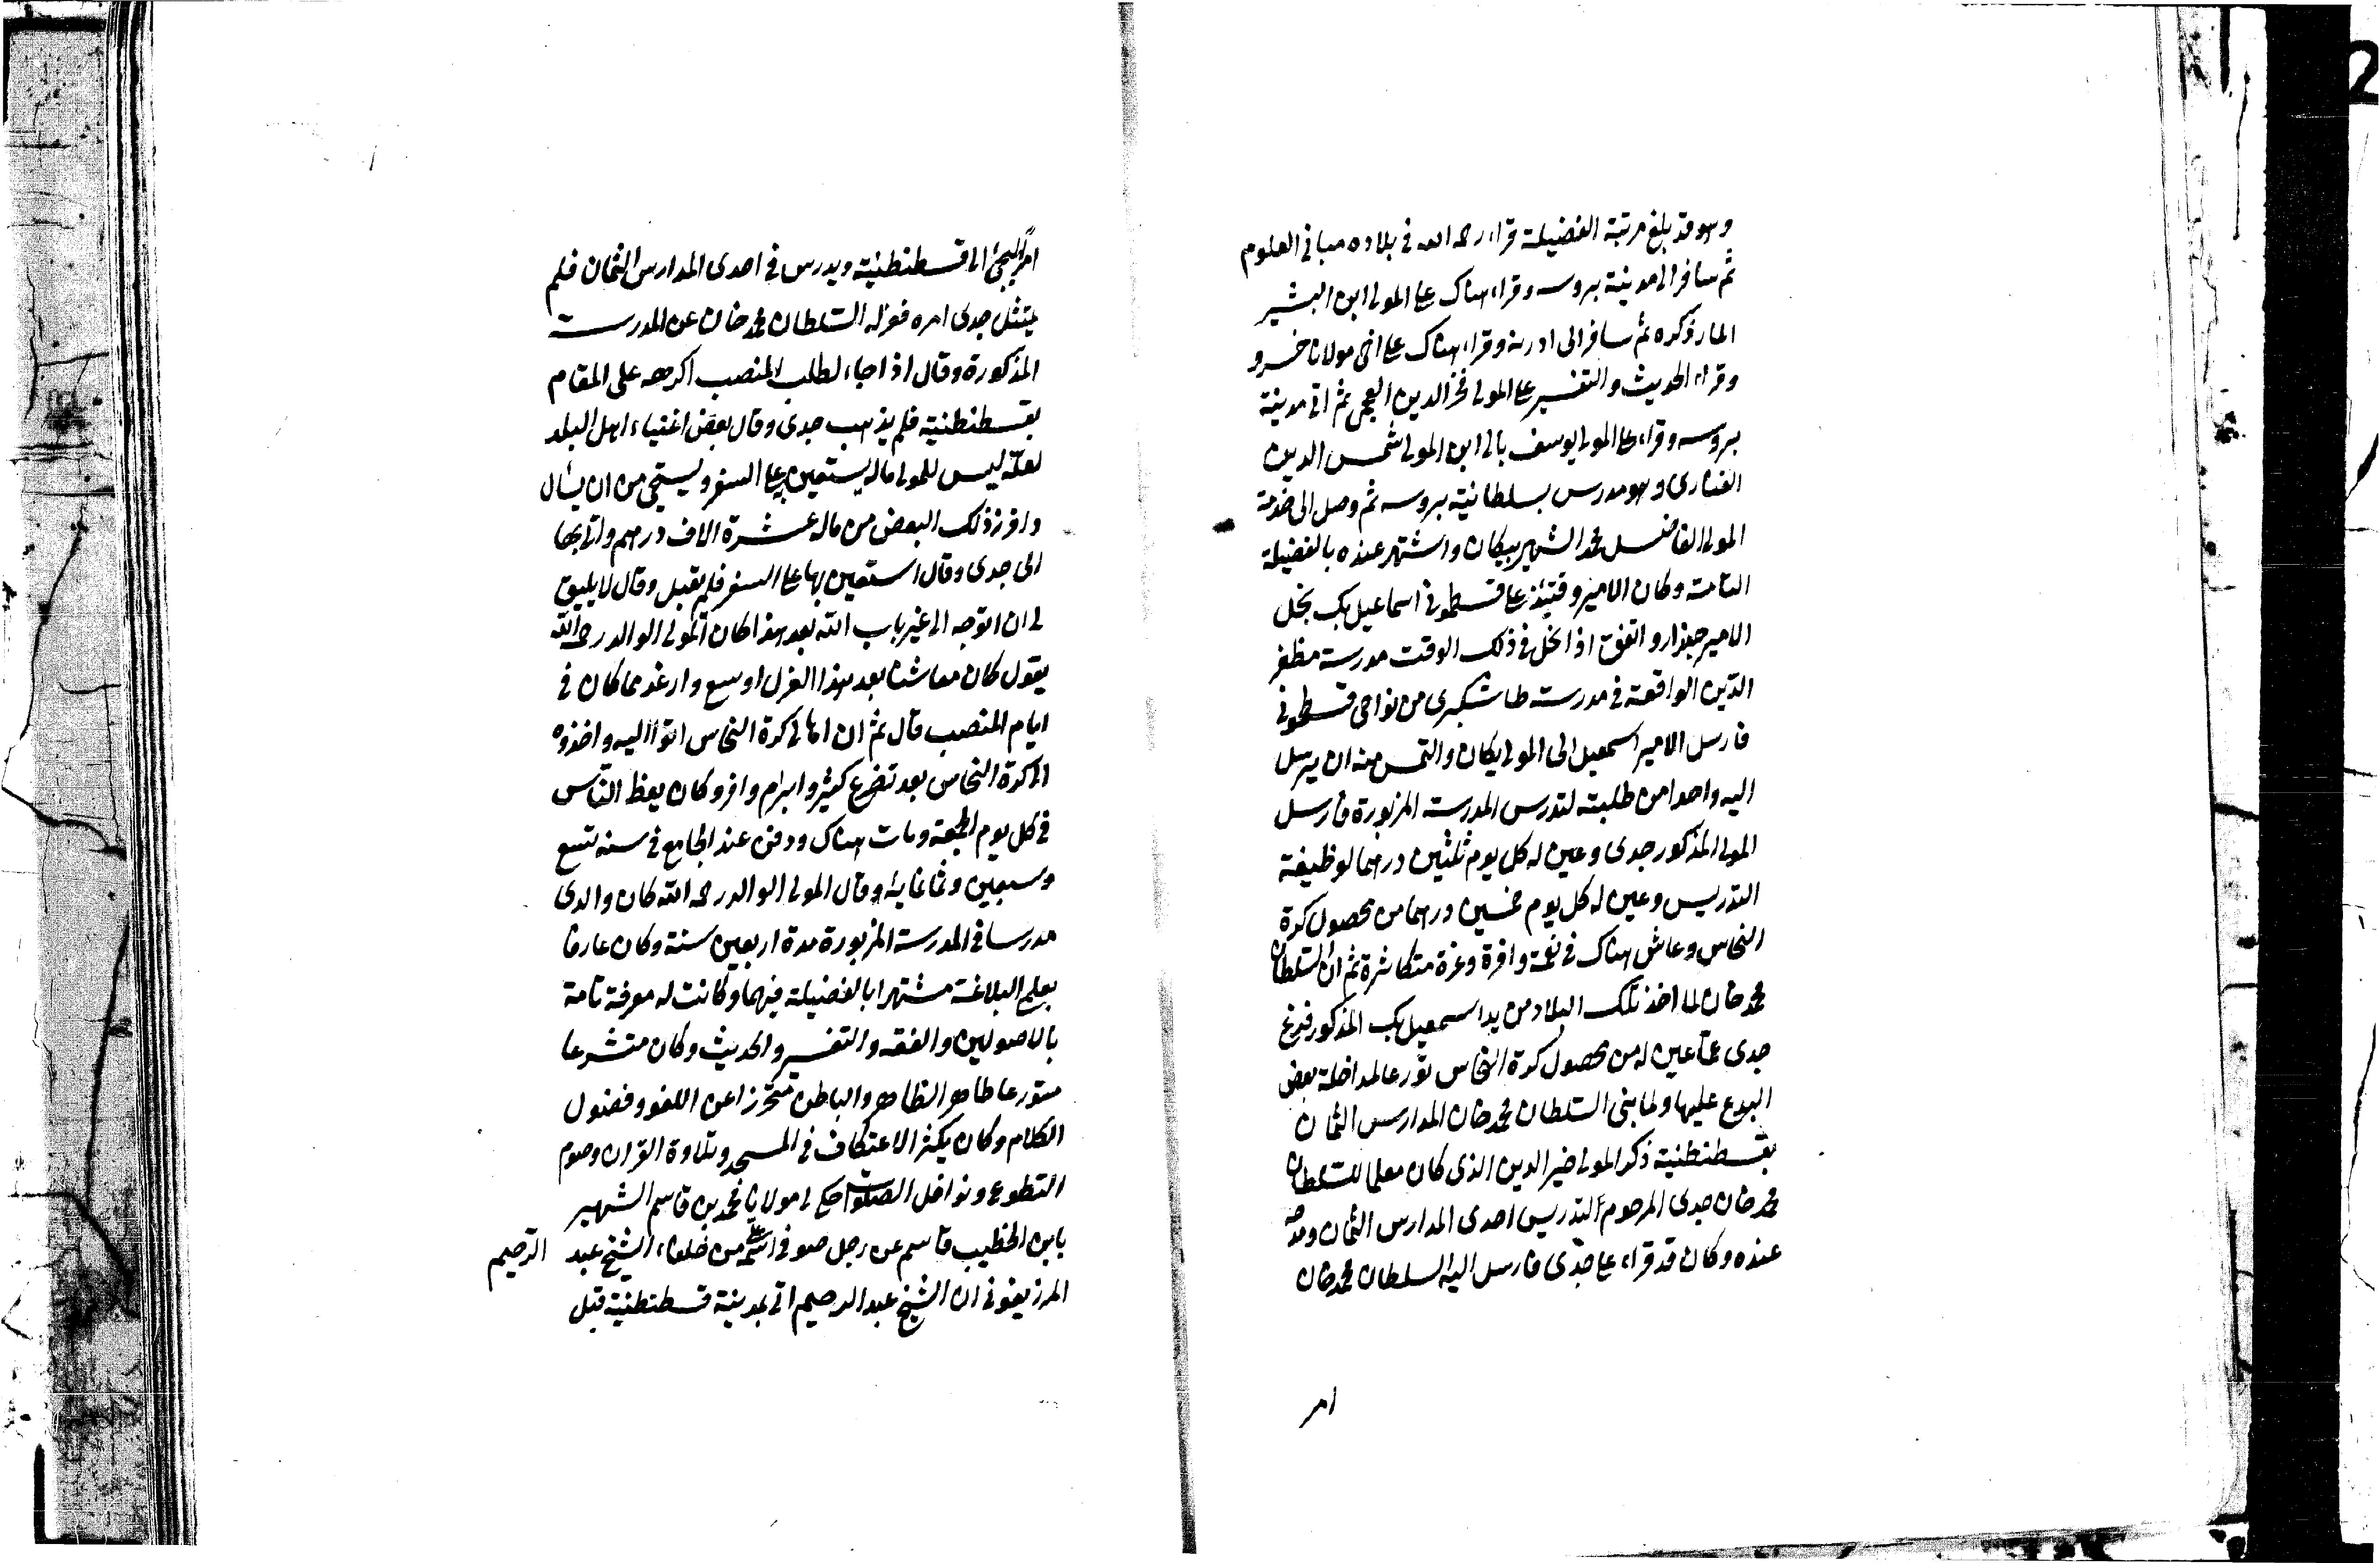 وهو قد بلغ مرتبة الفضيلة قراء رحمه الله في بلاده مباني العلوم
ثم سافر الى مدينة بروسه وقراء هناك على المولى ابن البشير
المار ذكره ثم سافر الى ادرنة وقراء هناك على اخى مولانا خسرو
وقراء الحديث والتفسير على المولى فخر الدين العجمى ثم اتى مدينة
بروسه وقراء على المولى يوسف بالى ابن المولى شمس الدين
الفنارى وهو مدرس بسلطانية بروسه ثم وصل الى خدمة
المولى الفاضل محمد الشهير بيكان واشتهر عنده بالفضيلة
التامة وكان الامير وقتئذ على قسطمونى اسماعيل بك نجل
الامير جندار واتفق اذ انحل فى ذلك الوقت مدرسة مظفر
الدين الواقعة فى مدرسة طاشكبرى من نواحى قسطمونى
فارسل الامير اسمعيل الى المولى يكان والتمس منه ان يرسل
اليه واحدا من طلبته لتدرس المدرسة المزبورة فارسل
المولى المذكور جدى وعين له كل يوم ثلثين درهما لوظيفة
التدريس وعين له كل يوم خمسين درهما من محصول كرة
النحاس وعاش هناك فى نعمة وافرة وعزة متكاثرة ثم ان السلطان
محمد خان لما اخذ تلك البلاد من يد اسمعيل بك المذكور فرغ
جدى عما عين له من محصول كرة النحاس تورعا لمداخلة بعض
البدع عليها ولما بنى السلطان محمد خان المدارس الثمان
بقسطنطنية ذكر المولى خير الدين الذى كان معلما للسلطان
محمد خان جدى المرحوم لتدريس احدى المدارس الثمان ومدحه
عنده وكان قد قراء على جدى فارسل اليه السلطان محمد خان
امر
امرا ليجئ الى قسطنطنية ويدرس فى احدى المدارس الثمان فلم
يمتثل جدى امره فعزله السلطان محمد خان عن المدرسة
المذكورة وقال اذا جاء لطلب المنصب اكرهه على المقام
بقسطنطنية فلم يذهب جدى وقال بعض اغنياء اهل البلد
لعله ليس للمولى مال يستعين به على السفر ويستحى من ان يسأل
وافرز ذلك البعض من ماله عشرة الاف درهم واتى بها
الى جدى وقال استعين بها على السفر فلم يقبل وقال لا يليق
لى ان اتوجه الى غير باب الله بعد هذا كان المولى الوالد رحمه الله
يقول كان معاشنا بعد هذا العزل اوسع وارغد مما كان فى
ايام المنصب قال ثم ان اهالى كرة النحاس اتوا اليه واخذوه
الى كرة النحاس بعد تضرع كثير وابرام وافر وكان يعظ الناس
فى كل يوم الجمعة ومات هناك ودفن عند الجامع فى سنة تسع
وسبعين وثمانمايه وقال المولى الوالد رحمه الله كان والدى
مدرسا فى المدرسة المزبورة مدة اربعين سنة وكان عارفا
بعلم البلاغة مشتهرا بالفضيلة فيهما وكانت له معرفة تامة
بالاصولين والفقه والتفسير والحديث وكان متشرعا
متورعا طاهر الظاهر والباطن متحرزا عن اللغو وفضول
الكلام وكان يكثر الاعتكاف فى المسجد وتلاوة القران وصوم
التطوع ونوافل الصلوات حكى لى مولانا محمد بن قاسم الشهير
بابن الخطيب قاسم عن رجل صوفى من خلفاء الشيخ عبد الرحيم
المرزيفونى ان الشيخ عبد الرحيم اتى مدينة قسطنطنية قبل